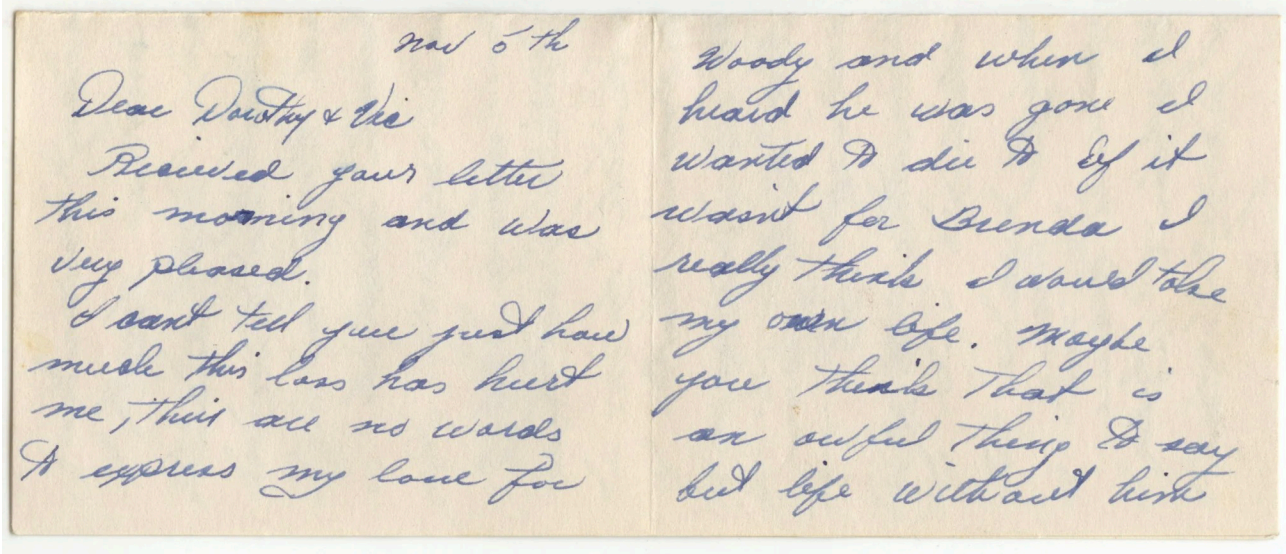 Nov 5th
Dear Dorothy & Vic
Recieved your letter
this morning and was
very pleased.
I cant tell you just how
much this loss has hurt
me, their are no words
to express my love for
Woody and when I
heard he was gone I
wanted to die to If it
wasn't for Brenda I
really think I would take
my own life. Maybe
you think that is
an awful thing to say
but life without him